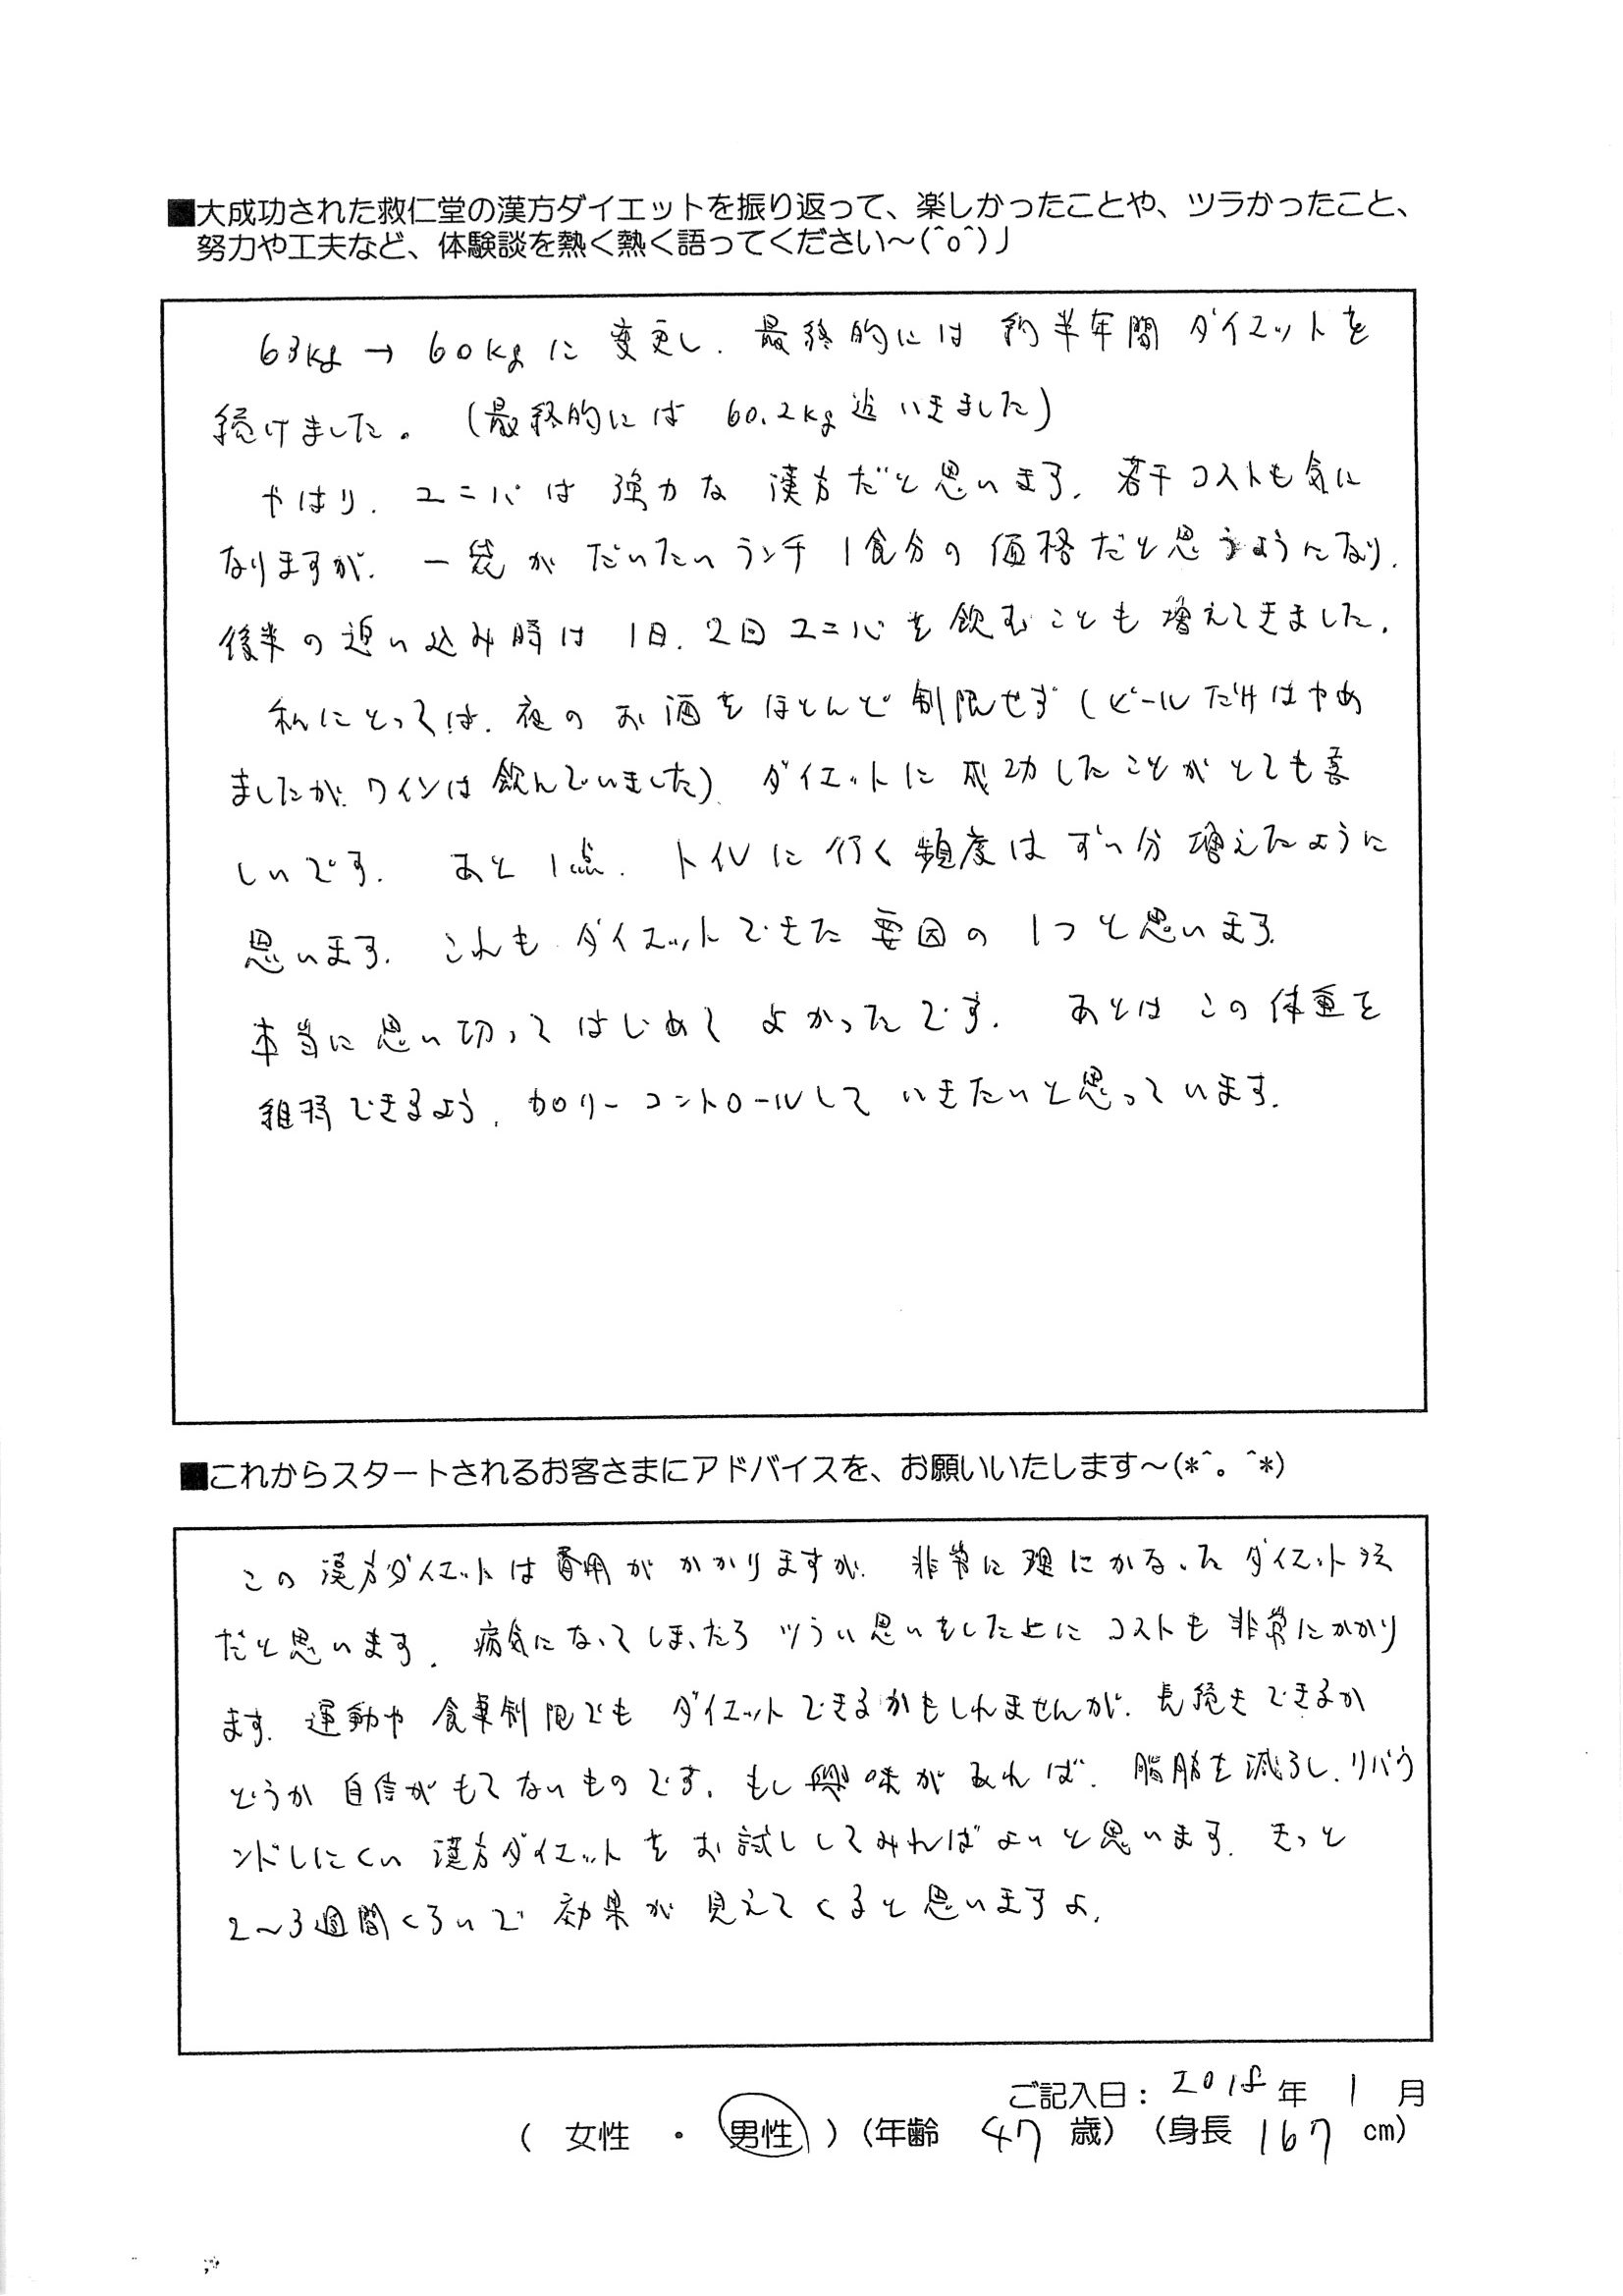 ■大成功された救仁堂の漢方ダイエットを振り返って、楽しかったことや、ツラかったこと、
努力や工夫など、体験談を熱く熱く語ってください～(^o^)丿
63kg→60kgに変更し、最終的には約半年間ダイエットを
続けました。(最終的には60.2kg迄いきました)
やはり、ユニパは強力な漢方だと思います。若干コストも気に
なりますが、一袋がだいたいランチ1食分の価格だと思うようになり、
後半の追い込み時は1日、2回ユニパを飲むことも増えてきました。
私にとっては、夜のお酒をほとんど制限せず(ビールだけはやめ
ましたが、ワインは飲んでいました)、ダイエットに成功したことがとても喜
しいです。あと1点、トイレに行く頻度はずい分増えたように
思います。これもダイエットできた要因の1つと思います。
本当に思い切ってはじめてよかったです。あとはこの体重を
維持できるよう、カロリーコントロールしていきたいと思っています。
■これからスタートされるお客さまにアドバイスを、お願いいたします～(*^。^*)
この漢方ダイエットは費用がかかりますが、非常に理にかなったダイエット法
だと思います。病気になってしまったらツラい思いをした上にコストも非常にかかり
ます。運動や食事制限でもダイエットできるかもしれませんが、長続きできるか
どうか自信がもてないものです。もし興味があれば、脂肪を減らし、リバウ
ンドしにくい漢方ダイエットをお試ししてみればよいと思います。きっと
2～3週間くらいで効果が見えてくると思いますよ。
ご記入日：2018年 1 月
( 女性 ・ 男性 ) (年齢 47 歳) (身長 167 cm)